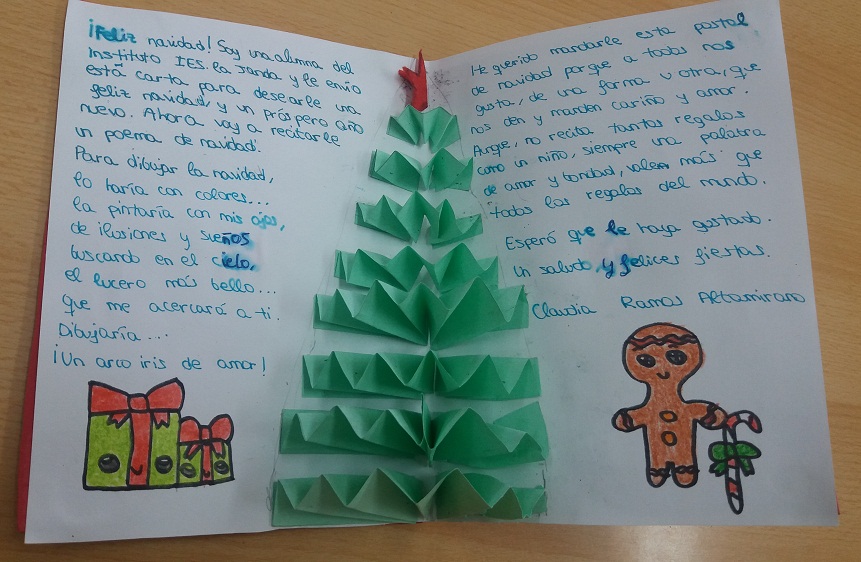 ¡Feliz navidad! Soy una alumna del
instituto IES. la Janda y le envío
está carta para desearle una
feliz navidad y un próspero año
nuevo. Ahora voy a recitarle
un poema de navidad.
Para dibujar la navidad,
lo haría con colores...
la pintaría con mis ojos,
de ilusiones y sueños
buscando en el cielo,
el lucero más bello...
que me acercará a ti.
Dibujaría...
¡Un arco iris de amor!
He querido mandarle esta postal
de navidad porque a todos nos
gusta, de una forma u otra, que
nos den y manden cariño y amor.
Aunque, no recita tantos regalos
como un niño, siempre una palabra
de amor y bondad, valen más que
todos los regalos del mundo.
Esperó que le haya gustado.
Un saludo y felices fiestas.
Claudia Ramos Altamirano